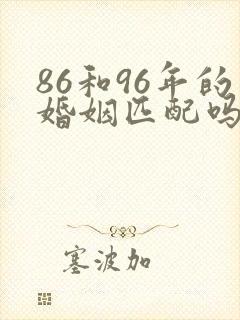 86和96年的
婚姻匹配吗
塞波加